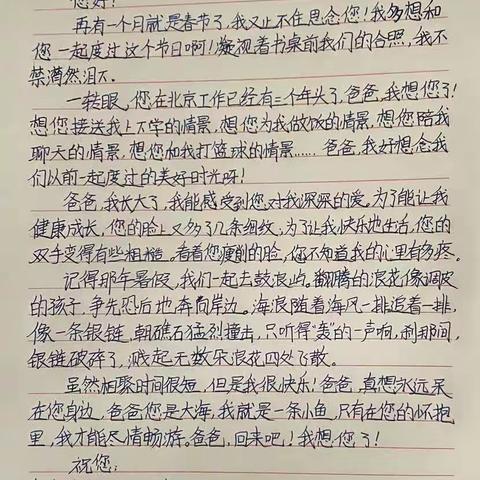 您好！
再有一个月就是春节了，我又止不住思念您！我多想和
您一起度过这个节日啊！凝视着书桌前我们的合照，我不
禁潸然泪下。
一转眼，您在北京工作已经有三个年头了，爸爸，我想您了！
想您接送我上下学的情景，想您为我做饭的情景，想您陪我
聊天的情景，想您和我打篮球的情景……爸爸，我好想念我
们以前一起度过的美好时光呀！
爸爸，我长大了，我能感受到您对我深深的爱，为了能让我
健康成长，您的脸上又多了几条细纹，为了让我快乐地生活，您的
双手变得有些粗糙。看着您瘦削的脸，您不知道我的心里有多疼。
记得那年暑假，我们一起去鼓浪屿。翻腾的浪花像调皮
的孩子，争先恐后地奔向岸边。海浪随着海风一排追着一排，
像一条银链，朝礁石猛烈撞击，只听得“轰”的一声响，刹那间，
银链破碎了，溅起无数朵浪花四处飞散。
虽然相聚时间很短，但是我很快乐！爸爸，真想永远呆
在您身边，爸爸您是大海，我就是一条小鱼，只有在您的怀抱
里，我才能尽情畅游。爸爸，回来吧！我想您了！
祝您：